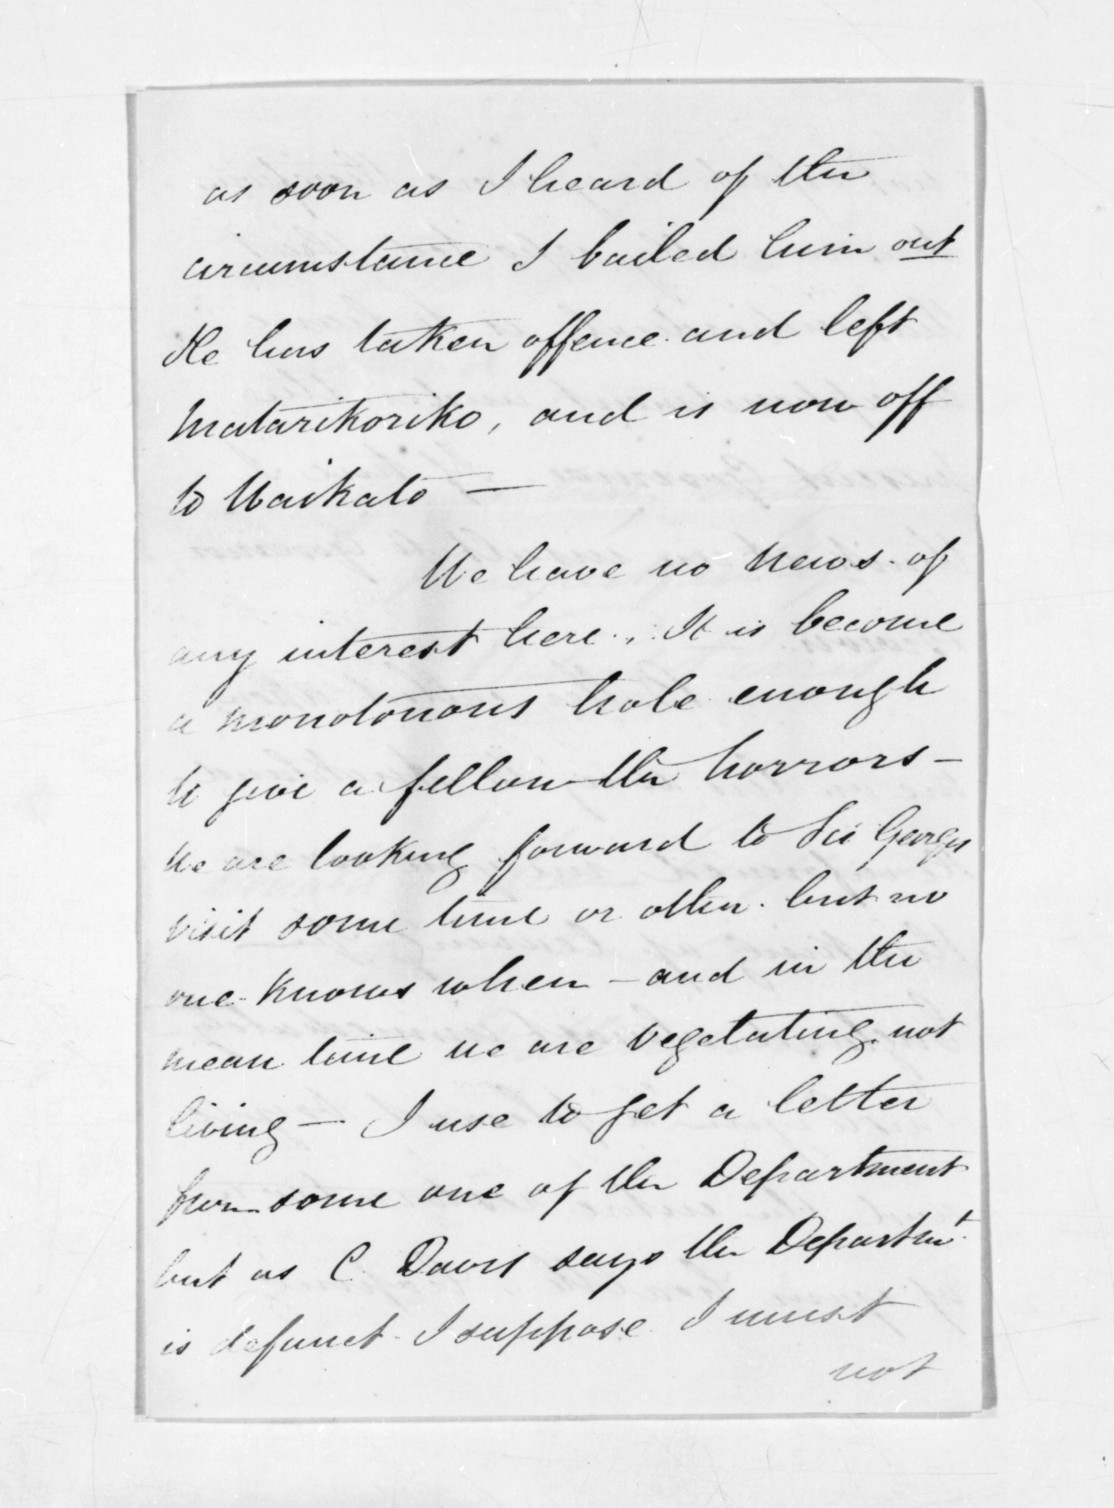 as soon as I heard of the
circumstance I bailed him out
He has taken offence and left
Matarikoriko, and is now off
to Waikato —
We have no News of
any interest here. It is become
a monotonous hole enough
to give a fellow the horrors —
We are looking forward to Sir Georges
visit some time or other. but no
one knows when — and in the
mean time we are vegetating not
living — I use to get a letter
from some one of the Department
but as C. Davis says the Departmt.
is defunct. I suppose I must
not